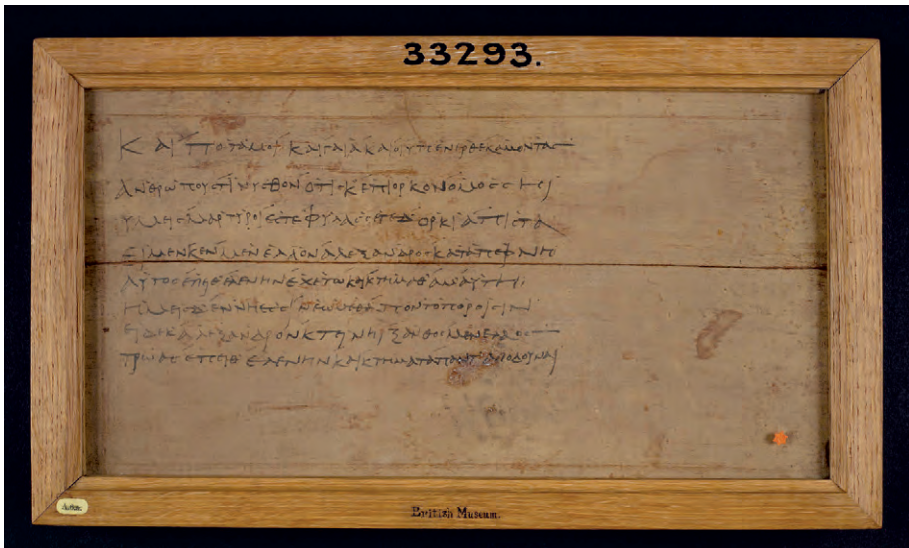 Και ποταμοι και γαια και οι υπενερθε καμοντας
ανθρωπους τινυσθον οτις κ επιορκον ομοσσηι
υμης μαρτυροι εστε φυλασσετε δ ορκια πιστα
ει μεν κεν μενελαον αλεξανδρος καταπεφνη
αυτος επηθ ελενην εχετω κη κτημαθ αμ αυτηι
ημεις δ εν νηεσσι νεωμεθα ποντοποροισιν
ει δε κ αλεξανδρον κτεινηι ξανθος μενελαος
τρωας επειθ ελενην και κτηματα παντ αποδουναι
33293.
British Museum.